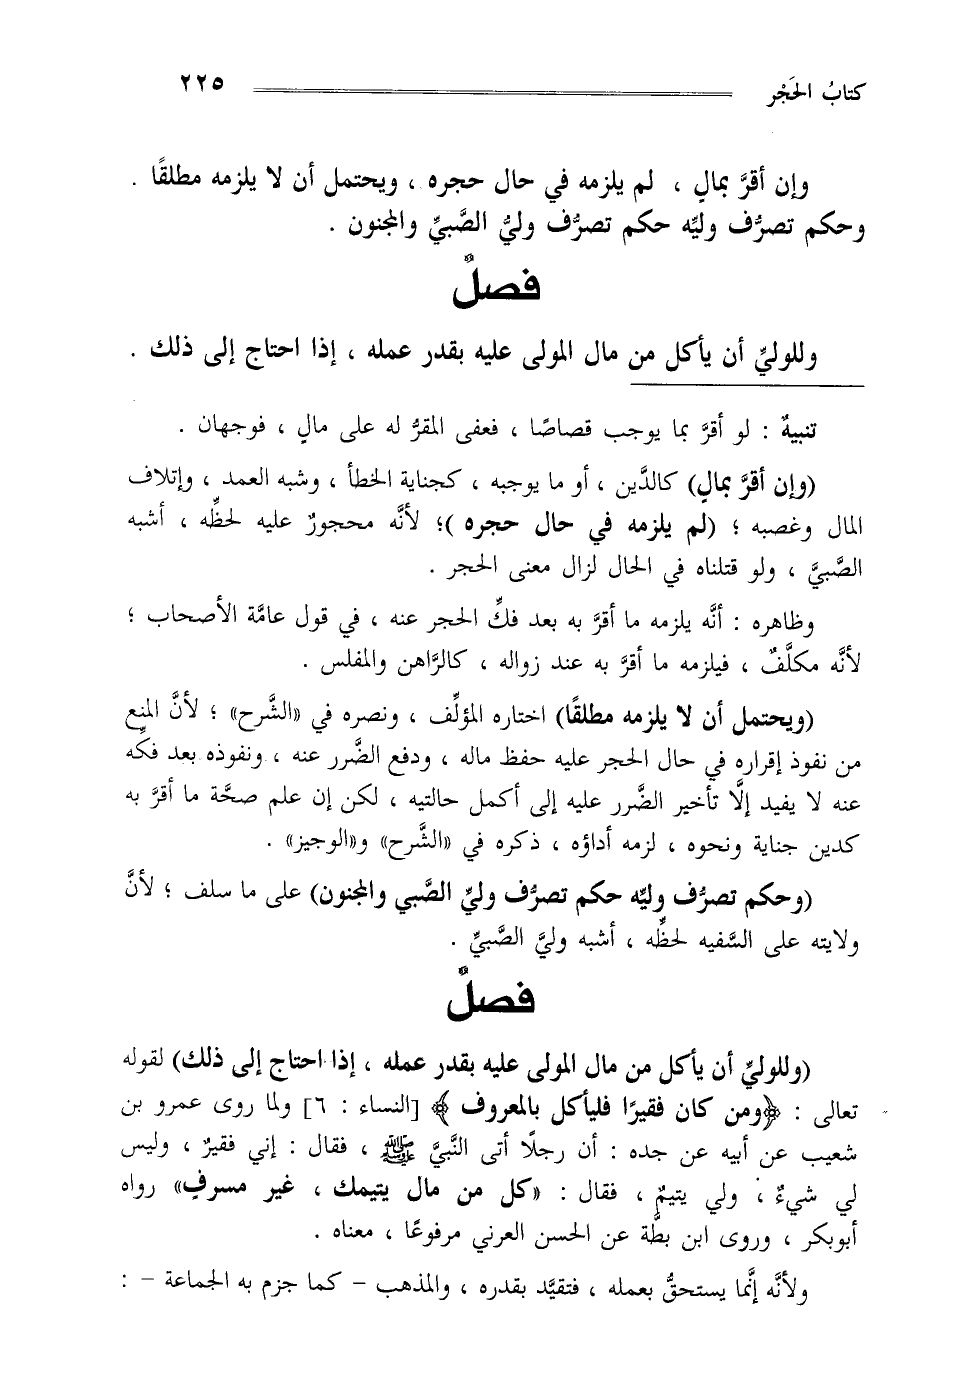 كتابُ الحَجْر ٢٢٥
وإن أقرَّ بمالٍ ، لم يلزمه في حال حجره ، ويحتمل أن لا يلزمه مطلقًا .
وحكم تصرُّف وليِّه حكم تصرُّف وليُّ الصَّبيِّ والمجنون .
فصلٌ
وللوليِّ أن يأكل من مال المولى عليه بقدر عمله ، إذا احتاج إلى ذلك .
تنبيهٌ : لو أقرَّ بما يوجب قصاصًا ، فعفى المقرُّ له على مالٍ ، فوجهان .
(وإن أقرَّ بمالٍ) كالدَّين ، أو ما يوجبه ، كجناية الخطأ ، وشبه العمد ، وإتلاف
المال وغصبه ؛ (لم يلزمه في حال حجره )؛ لأنَّه محجورٌ عليه لحظِّه ، أشبه
الصَّبيَّ ، ولو قتلناه في الحال لزال معنى الحجر .
وظاهره : أنَّه يلزمه ما أقرَّ به بعد فكِّ الحجر عنه ، في قول عامَّة الأصحاب ؛
لأنَّه مكلَّفٌ ، فيلزمه ما أقرَّ به عند زواله ، كالرَّاهن والمفلس .
(ويحتمل أن لا يلزمه مطلقًا) اختاره المؤلِّف ، ونصره في «الشَّرح» ؛ لأنَّ المنع
من نفوذ إقراره في حال الحجر عليه حفظ ماله ، ودفع الضَّرر عنه ، ونفوذه بعد فكِّه
عنه لا يفيد إلَّا تأخير الضَّرر عليه إلى أكمل حالتيه ، لكن إن علم صحَّة ما أقرَّ به
كدين جناية ونحوه ، لزمه أداؤه ، ذكره في «الشَّرح» و«الوجيز» .
(وحكم تصرُّف وليِّه حكم تصرُّف وليِّ الصَّبي والمجنون) على ما سلف ؛ لأنَّ
ولايته على السَّفيه لحظِّه ، أشبه وليَّ الصَّبيِّ .
فصلٌ
(وللوليِّ أن يأكل من مال المولى عليه بقدر عمله ، إذا احتاج إلى ذلك) لقوله
تعالى : ﴿ومن كان فقيرًا فليأكل بالمعروف ﴾ [النساء : ٦] ولما روى عمرو بن
شعيب عن أبيه عن جده : أن رجلًا أتى النَّبيَّ ﷺ ، فقال : إني فقيرٌ ، وليس
لي شيءٌ ، ولي يتيمٌ ، فقال : «كل من مال يتيمك ، غير مسرفٍ» رواه
أبوبكر ، وروى ابن بطَّة عن الحسن العرني مرفوعًا ، معناه .
ولأنَّه إنَّما يستحقُّ بعمله ، فتقيَّد بقدره ، والمذهب – كما جزم به الجماعة – :